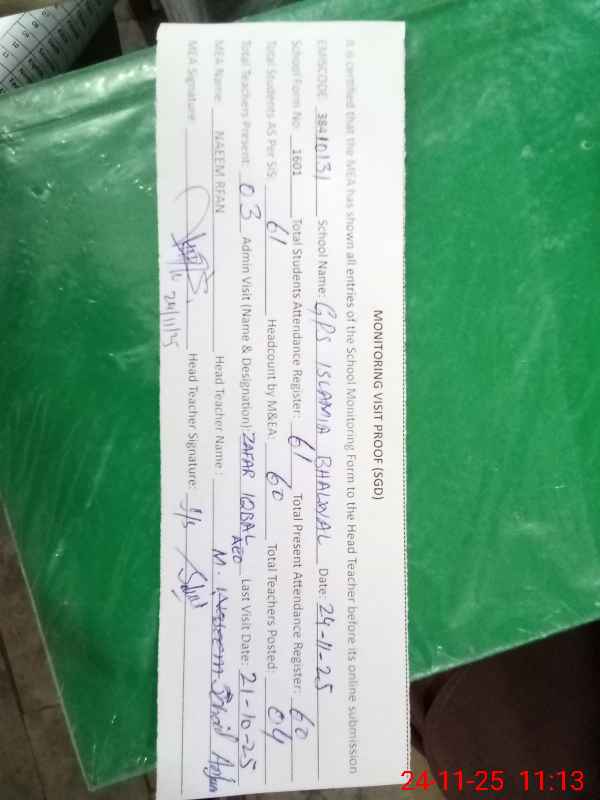 MONITORING VISIT PROOF (SGD)
It is certified that the MEA has shown all entries of the School Monitoring Form to the Head Teacher before its online submission
EMISCODE 38410131 School Name: GPS ISLAMIA BHALWAL Date: 24-11-25
School Form No: 1601 Total Students Attendance Register: 61 Total Present Attendance Register: 60
Total Students AS Per SIS: 61 Headcount by M&EA: 60 Total Teachers Posted: 04
Total Teachers Present: 03 Admin Visit (Name & Designation) ZAFAR IQBAL AEO Last Visit Date: 21-10-25
MEA Name: NAEEM RFAN Head Teacher Name : M.
MEA Signature: 24/11/25 Head Teacher Signature:
24-11-25 11:13